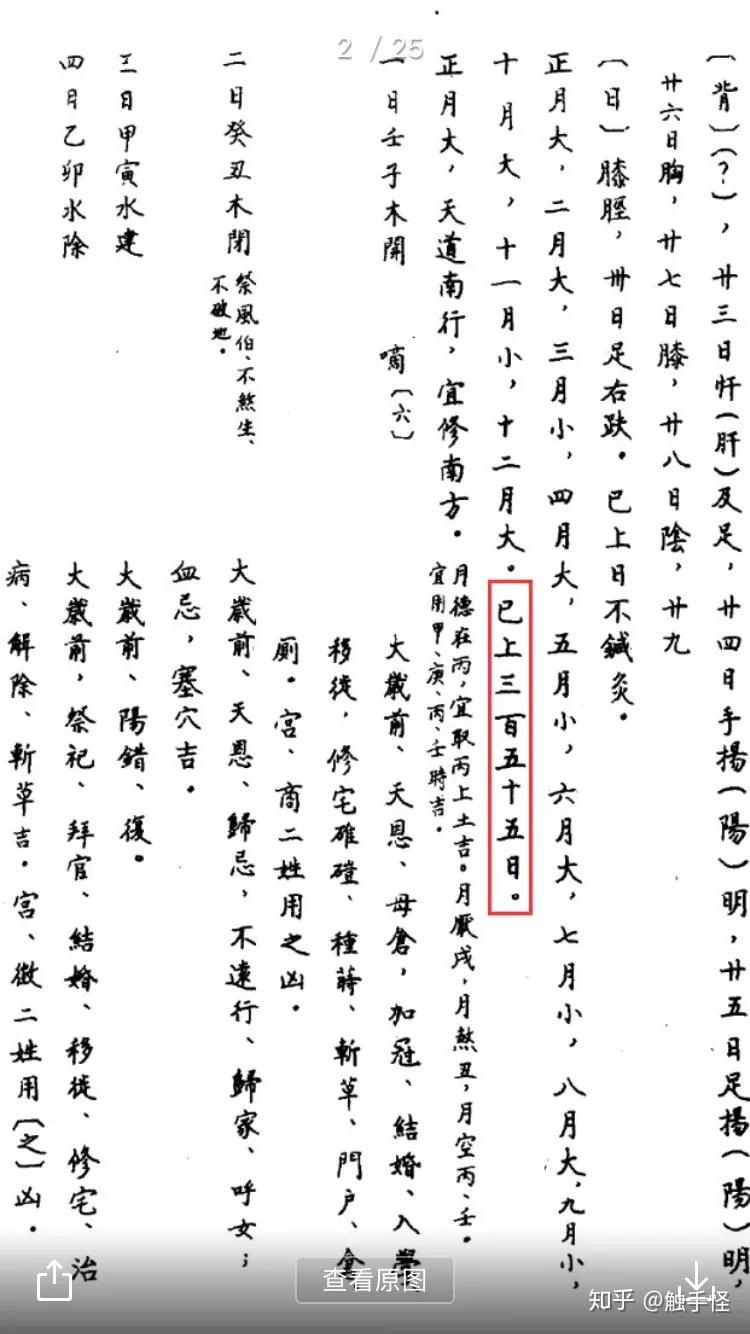 2 / 25
〔背〕(?)，廿三日忓(肝)及足，廿四日手揚(陽)明，廿五日足揚(陽)明，
廿六日胸，廿七日膝，廿八日陰，廿九
〔日〕膝脛，卅日足右趺。已上日不鍼灸。
正月大，二月大，三月小，四月大，五月小，六月大，七月小，八月大，九月小，
十月大，十一月小，十二月大。已上三百五十五日。
正月大，天道南行，宜修南方。月德在丙，宜取丙上土吉。月厭戌，月煞丑，月空丙、壬。
宜用甲、庚、丙、壬時吉。
一日壬子木開 嗃〔六〕 大歲前、天恩、母倉，加冠、結婚、入學、
移徙，修宅碓磑、種蒔、斬草、門户、倉
厠。宮、商二姓用之凶。
二日癸丑木閉 祭風伯、不煞生、
不破地。 大歲前、天恩、歸忌，不遠行、歸家、呼女；
血忌，塞穴吉。
三日甲寅水建 大歲前、陽錯、復。
四日乙卯水除 大歲前，祭祀、拜官、結婚、移徙、修宅、治
病、解除、斬草吉。宮、徵二姓用〔之〕凶。
查看原图
知乎 @触手怪